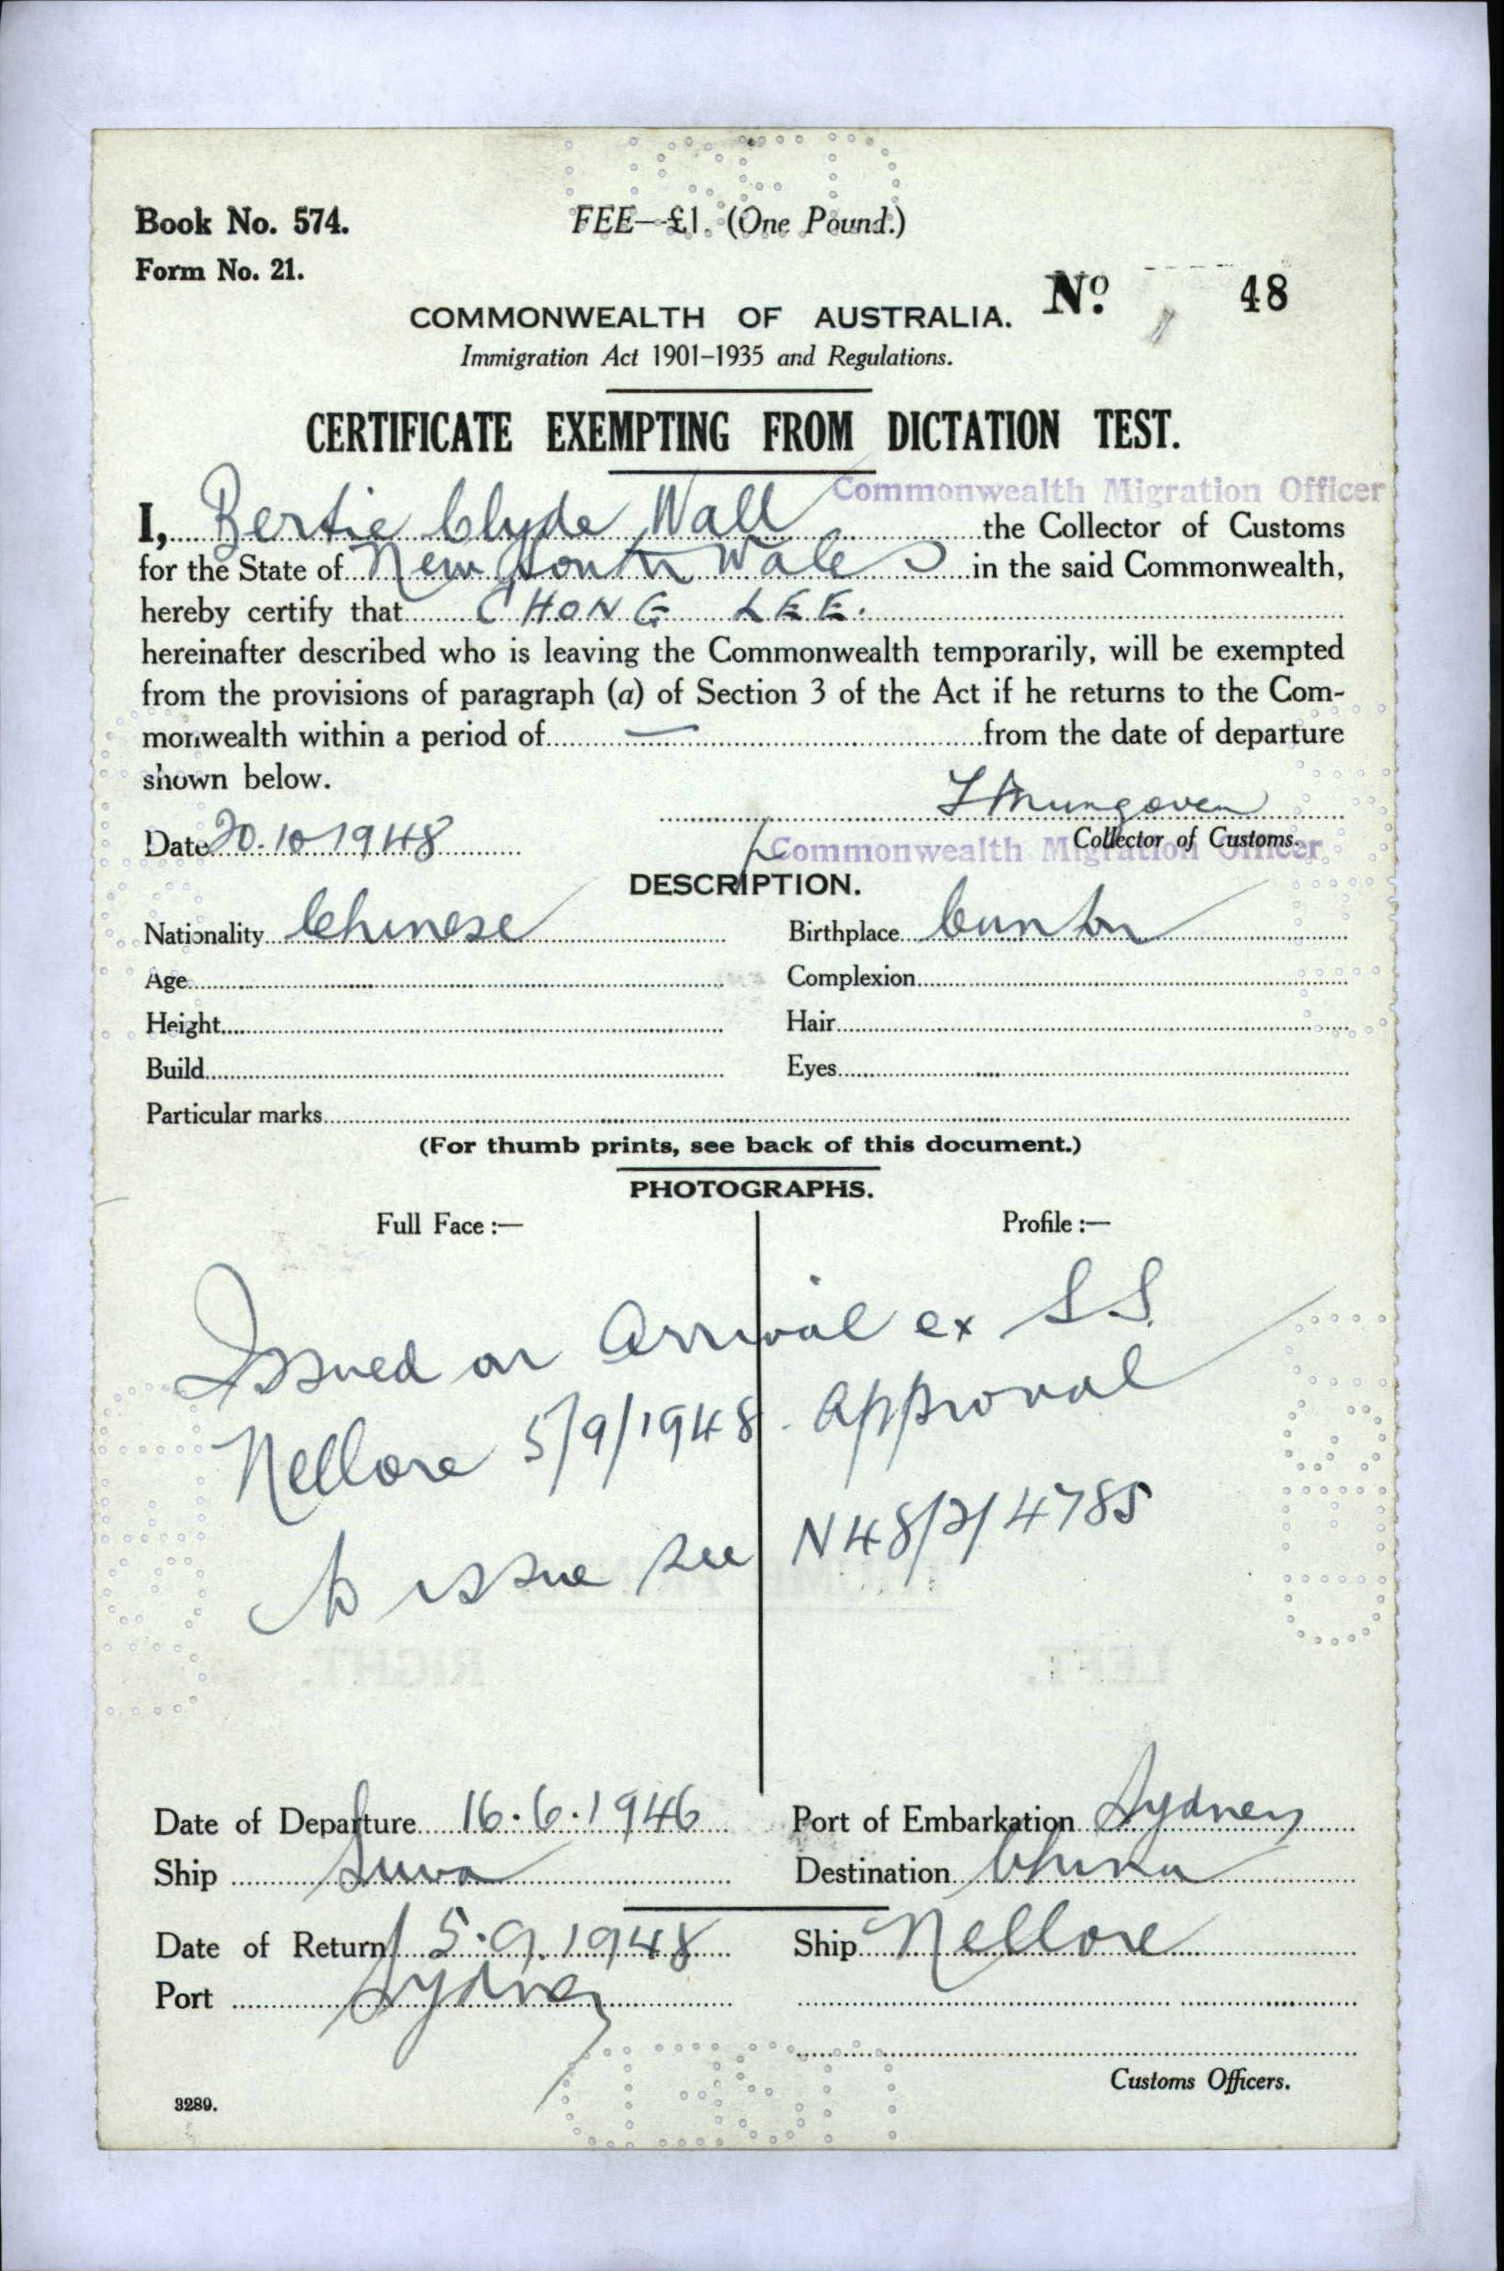 Book No. 574.
FEE—£1. (One Pound.)
Form No. 21.
No. 48
COMMONWEALTH OF AUSTRALIA.
Immigration Act 1901–1935 and Regulations.
CERTIFICATE EXEMPTING FROM DICTATION TEST.
Commonwealth Migration Officer
I, Bertie Clyde Wall the Collector of Customs
for the State of New South Wales in the said Commonwealth,
hereby certify that CHONG LEE.
hereinafter described who is leaving the Commonwealth temporarily, will be exempted
from the provisions of paragraph (a) of Section 3 of the Act if he returns to the Com-
monwealth within a period of — from the date of departure
shown below.
Date 20.10.1948
Collector of Customs.
Commonwealth Migration Officer
DESCRIPTION.
Nationality Chinese Birthplace Canton
Age Complexion
Height Hair
Build Eyes
Particular marks
(For thumb prints, see back of this document.)
PHOTOGRAPHS.
Full Face :— Profile :—
Issued on Arrival ex S.S.
Nellore 5/9/1948. Approval
to issue see N48/2/4785
Date of Departure 16.6.1946 Port of Embarkation Sydney
Ship Suva Destination China
Date of Return 5.9.1948 Ship Nellore
Port Sydney
Customs Officers.
3289.